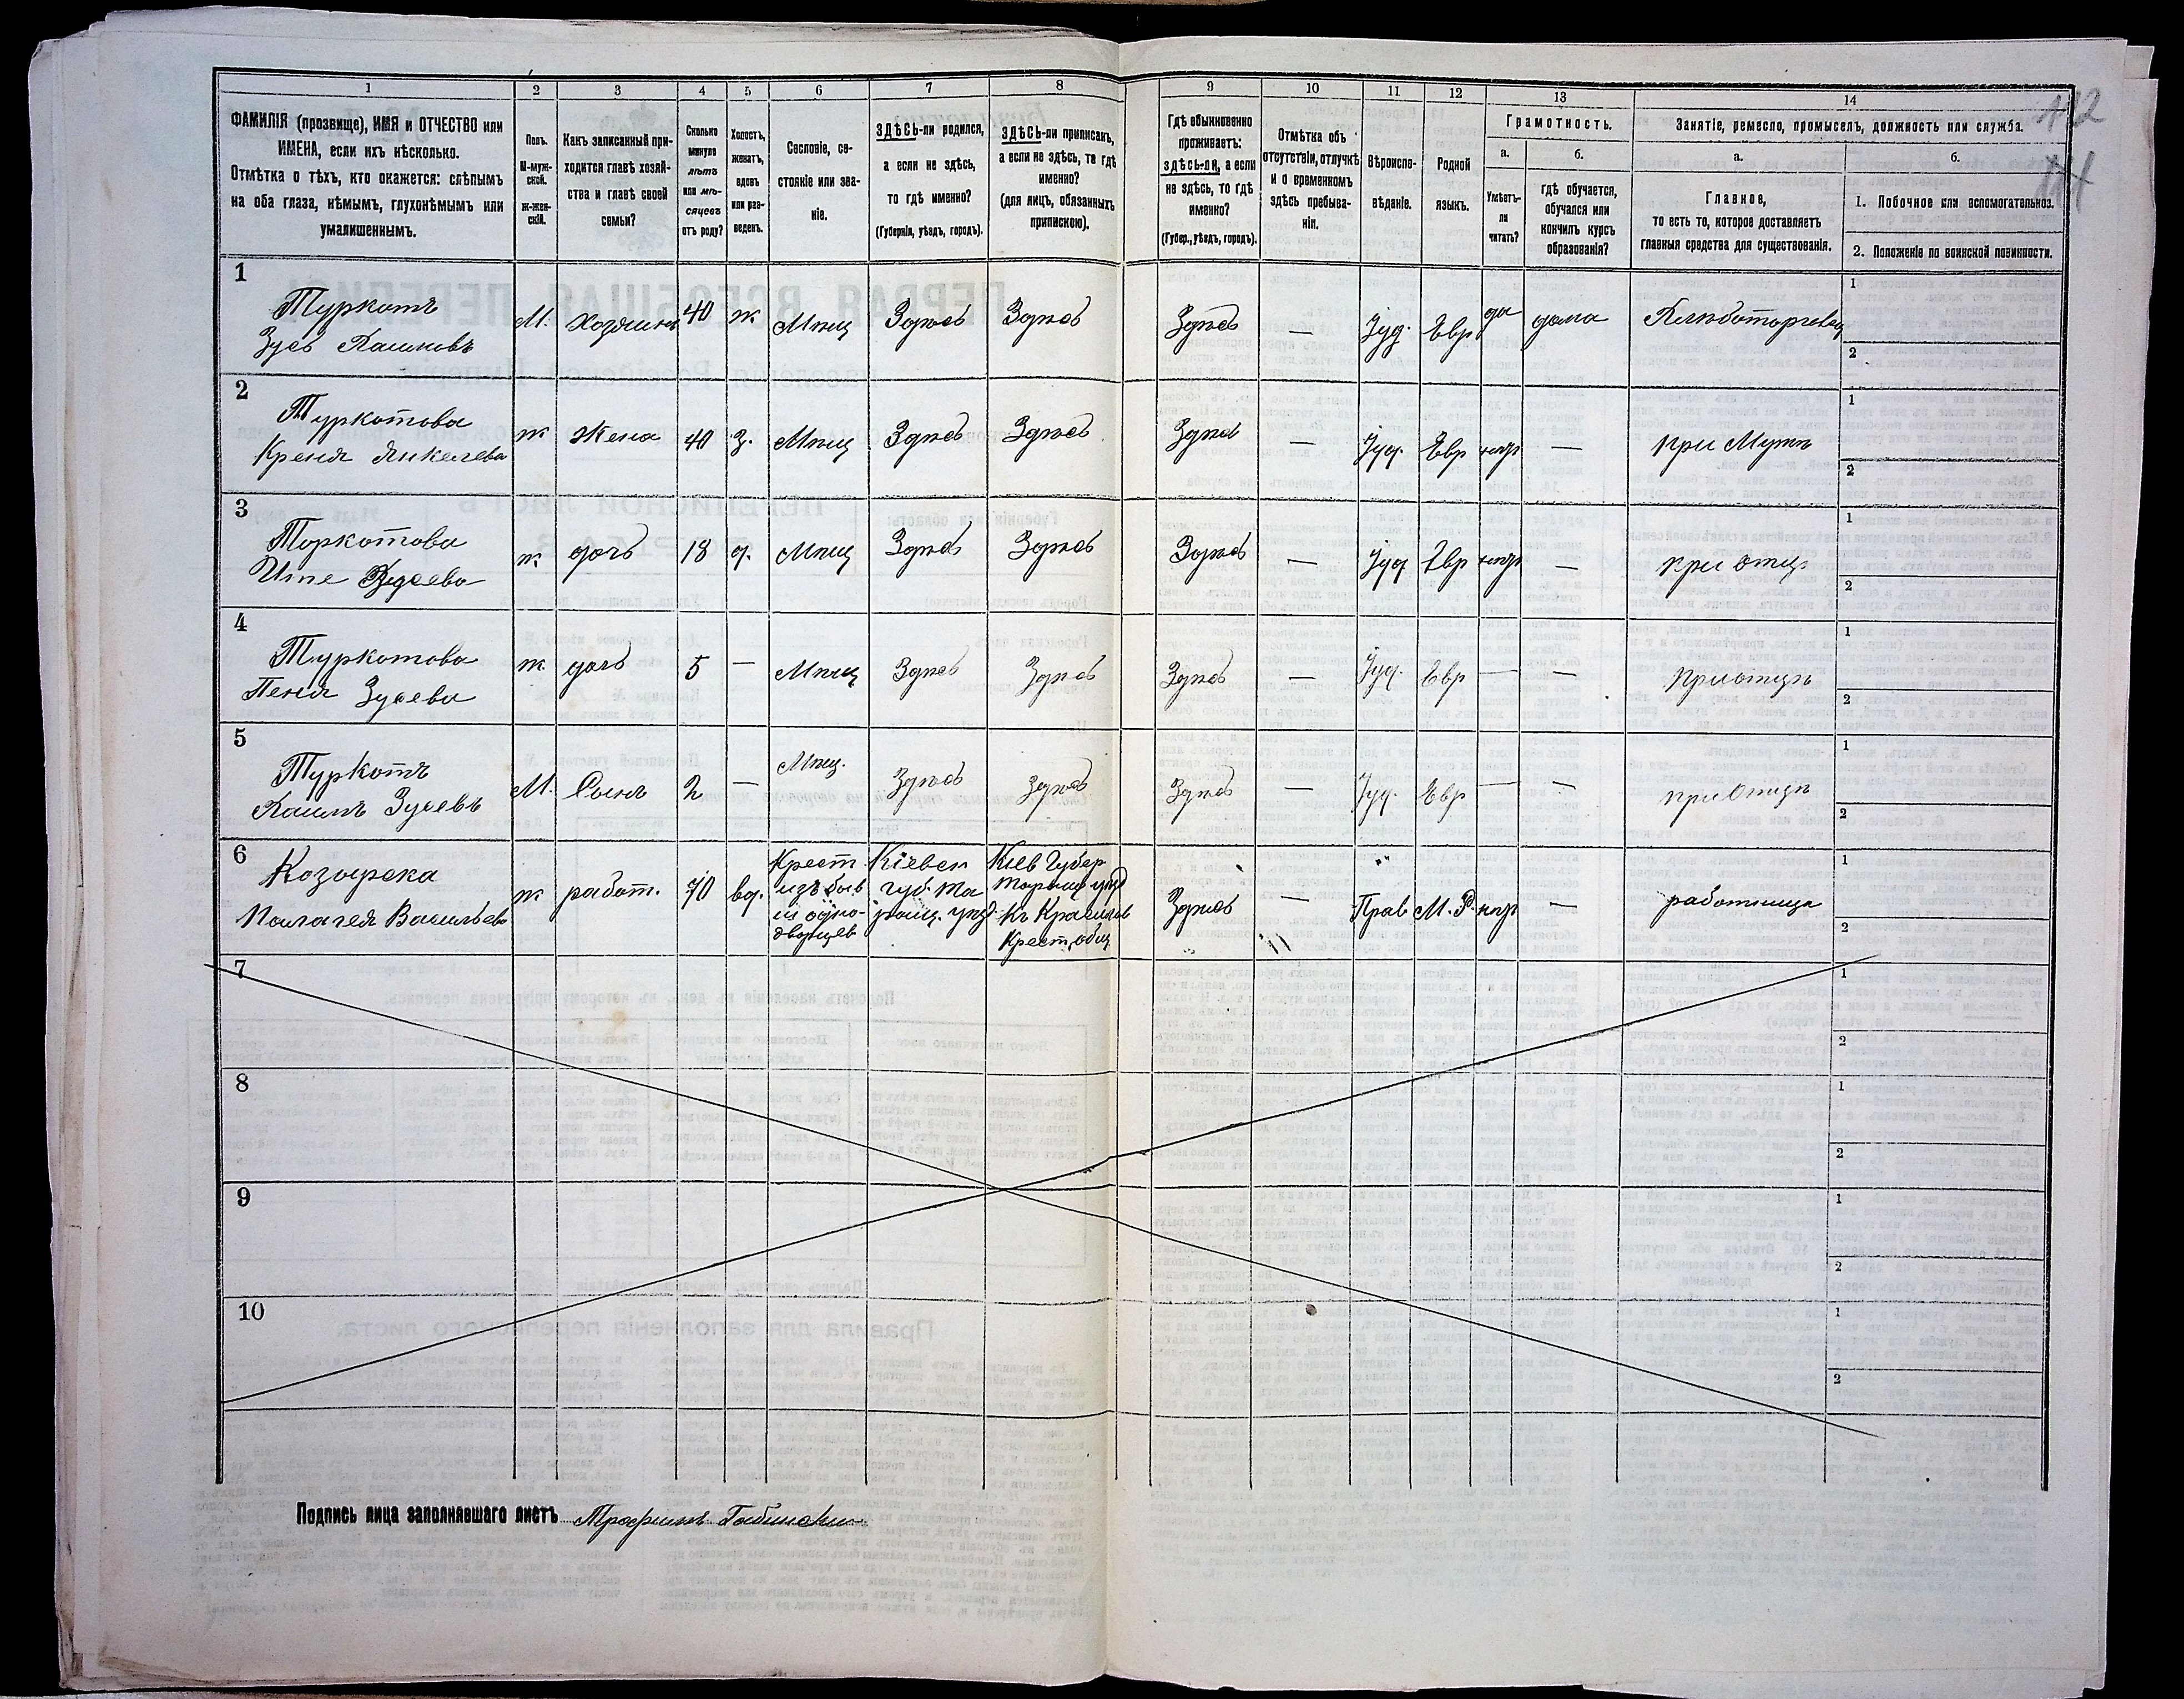 1 2 3 4 5 6 7 8 9 10 11 12 13 14
ФАМИЛІЯ (прозвище), ИМЯ и ОТЧЕСТВО или
ИМЕНА, если ихъ нѣсколько.
Отмѣтка о тѣхъ, кто окажется: слѣпымъ
на оба глаза, нѣмымъ, глухонѣмымъ или
умалишеннымъ.
Полъ.
М-муж-
ской.
Ж-жен-
скій.
Какъ записанный при-
ходится главѣ хозяй-
ства и главѣ своей
семьи?
Сколько
минуло
лѣтъ
или мѣ-
сяцевъ
отъ роду?
Холостъ,
женатъ,
вдовъ
или раз-
веденъ.
Сословіе, со-
стояніе или зва-
ніе.
ЗДѢСЬ-ли родился,
а если не здѣсь,
то гдѣ именно?
(Губернія, уѣздъ, городъ).
ЗДѢСЬ-ли приписанъ,
а если не здѣсь, то гдѣ
именно?
(для лицъ, обязанныхъ
припискою).
Гдѣ обыкновенно
проживаетъ:
ЗДѢСЬ-ЛИ, а если
не здѣсь, то гдѣ
именно?
(Губер., уѣздъ, городъ).
Отмѣтка объ
отсутствіи, отлучкѣ
и о временномъ
здѣсь пребыва-
ніи.
Вѣроиспо-
вѣданіе.
Родной
языкъ.
Грамотность.
а.
Умѣетъ-
ли
читать?
б.
гдѣ обучается,
обучался или
кончилъ курсъ
образованія?
Занятіе, ремесло, промыселъ, должность или служба.
а.
Главное,
то есть то, которое доставляетъ
главныя средства для существованія.
б.
1. Побочное или вспомогательное.
2. Положеніе по воинской повинности.
112
1
Туркотъ
Зусь Хаимовъ
М. Хозяинъ 40 ж Мѣщ Здѣсь Здѣсь Здѣсь — Іуд. Евр да дома Хлѣботорговец
1
2
2
Туркотова
Креня Янкелева
ж Жена 40 З. Мѣщ Здѣсь Здѣсь Здѣсь — Іуд. Евр нѣт — при Мужѣ
1
2
3
Торкотова
Ите Зусева
ж дочь 18 д. Мѣщ Здѣсь Здѣсь Здѣсь — Іуд Евр нѣт — при отцѣ
1
2
4
Туркотова
Пеня Зусева
ж дочь 5 — Мѣщ Здѣсь Здѣсь Здѣсь — Іуд. Евр — — при отцѣ
1
2
5
Туркотъ
Хаимъ Зусевъ
М. Сынъ 2 — Мѣщ. Здѣсь Здѣсь Здѣсь — Іуд. Евр — — при Отцѣ
1
2
6
Козырска
Палагея Васильева
ж работ. 70 вд.
Крест
изъ быв
ш одно-
дворцев
Кіевск
губ. Та
ращ. уѣзд
Кіев Губер
Таращ уѣзд
Крест, общ
Здѣсь — Прав М. Р. нѣт — работница
1
2
7
1
2
8
1
2
9
1
2
10
1
2
Подпись лица заполнявшаго листъ Трофимъ Бабински